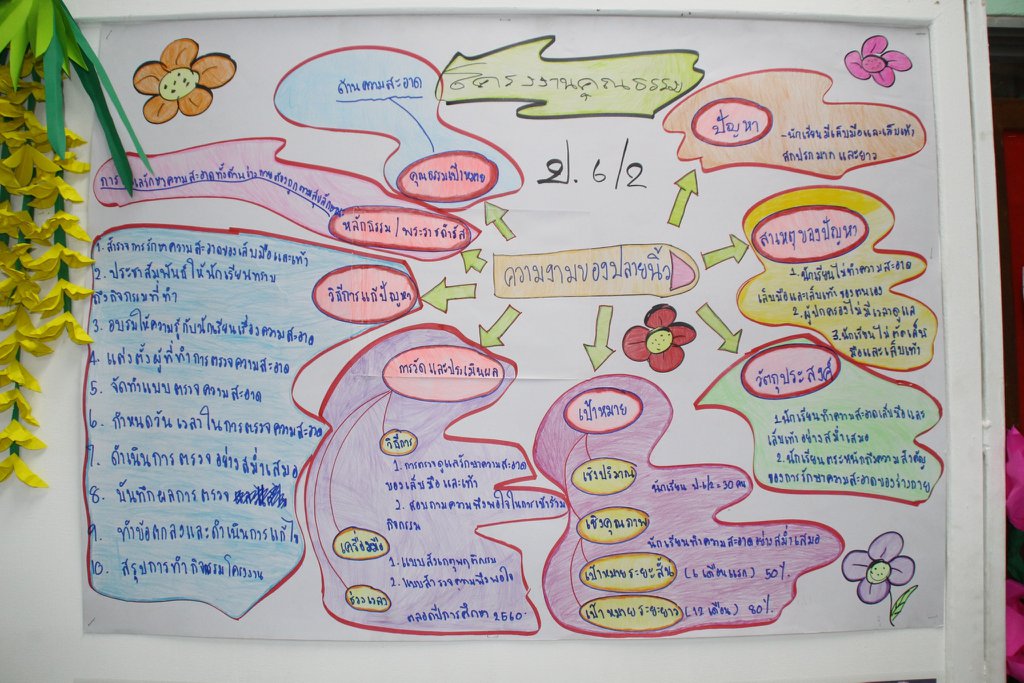 โครงงานคุณธรรม
ป. 6/2
ความงามของปลายนิ้ว
ปัญหา
-นักเรียนมีเล็บมือและเล็บเท้า
สกปรกมาก และยาว
สาเหตุของปัญหา
1. นักเรียนไม่ทำความสะอาด
เล็บมือและเล็บเท้าของตนเอง
2. ผู้ปกครองไม่มีเวลาดูแล
3. นักเรียนไม่ตัดเล็บ
มือและเล็บเท้า
วัตถุประสงค์
1. นักเรียนทำความสะอาดเล็บมือและ
เล็บเท้าอย่างสม่ำเสมอ
2. นักเรียนตระหนักถึงความสำคัญ
ของการรักษาความสะอาดของร่างกาย
เป้าหมาย
เชิงปริมาณ
นักเรียน ป.6/2 = 30 คน
เชิงคุณภาพ
นักเรียนทำความสะอาดอย่างสม่ำเสมอ
เป้าหมายระยะสั้น (6 เดือนแรก) 50%
เป้าหมายระยะยาว (12 เดือน) 80%
การวัดและประเมินผล
วิธีการ
1. การตรวจดูแลรักษาความสะอาด
ของเล็บมือและเท้า
2. สอบถามความพึงพอใจในการเข้าร่วม
กิจกรรม
เครื่องมือ
1. แบบสังเกตพฤติกรรม
2. แบบสำรวจความพึงพอใจ
ช่วงเวลา
ตลอดปีการศึกษา 2560
วิธีการแก้ปัญหา
1. สำรวจการรักษาความสะอาดของเล็บมือและเท้า
2. ประชาสัมพันธ์ให้นักเรียนทราบ
ถึงกิจกรรมที่ทำ
3. อบรมให้ความรู้กับนักเรียนเรื่องความสะอาด
4. แต่งตั้งผู้ที่ทำการตรวจความสะอาด
5. จัดทำแบบตรวจความสะอาด
6. กำหนดวันเวลาในการตรวจความสะอาด
7. ดำเนินการตรวจอย่างสม่ำเสมอ
8. บันทึกผลการตรวจ
9. ทำข้อตกลงและดำเนินการแก้ไข
10. สรุปการทำกิจกรรมโครงงาน
หลักธรรม / พระราชดำรัส
รักษาความสะอาดทั้งด้านร่างกาย
คุณธรรมเป้าหมาย
ด้านความสะอาด